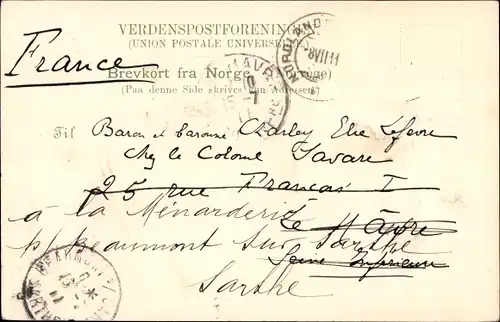 VERDENSPOSTFORENINGEN
(UNION POSTALE UNIVERSELLE)
France
Brevkort fra Norge (Norvège)
(Paa denne Side skrives kun Adressen)
Til Baron et baronne Charley Elie Lefevre
Chez le Colonel Savare
25 rue Francois I
à la Ménarderie
Le Hâvre
p/ Beaumont sur Sarthe
Seine Inférieure
Sarthe